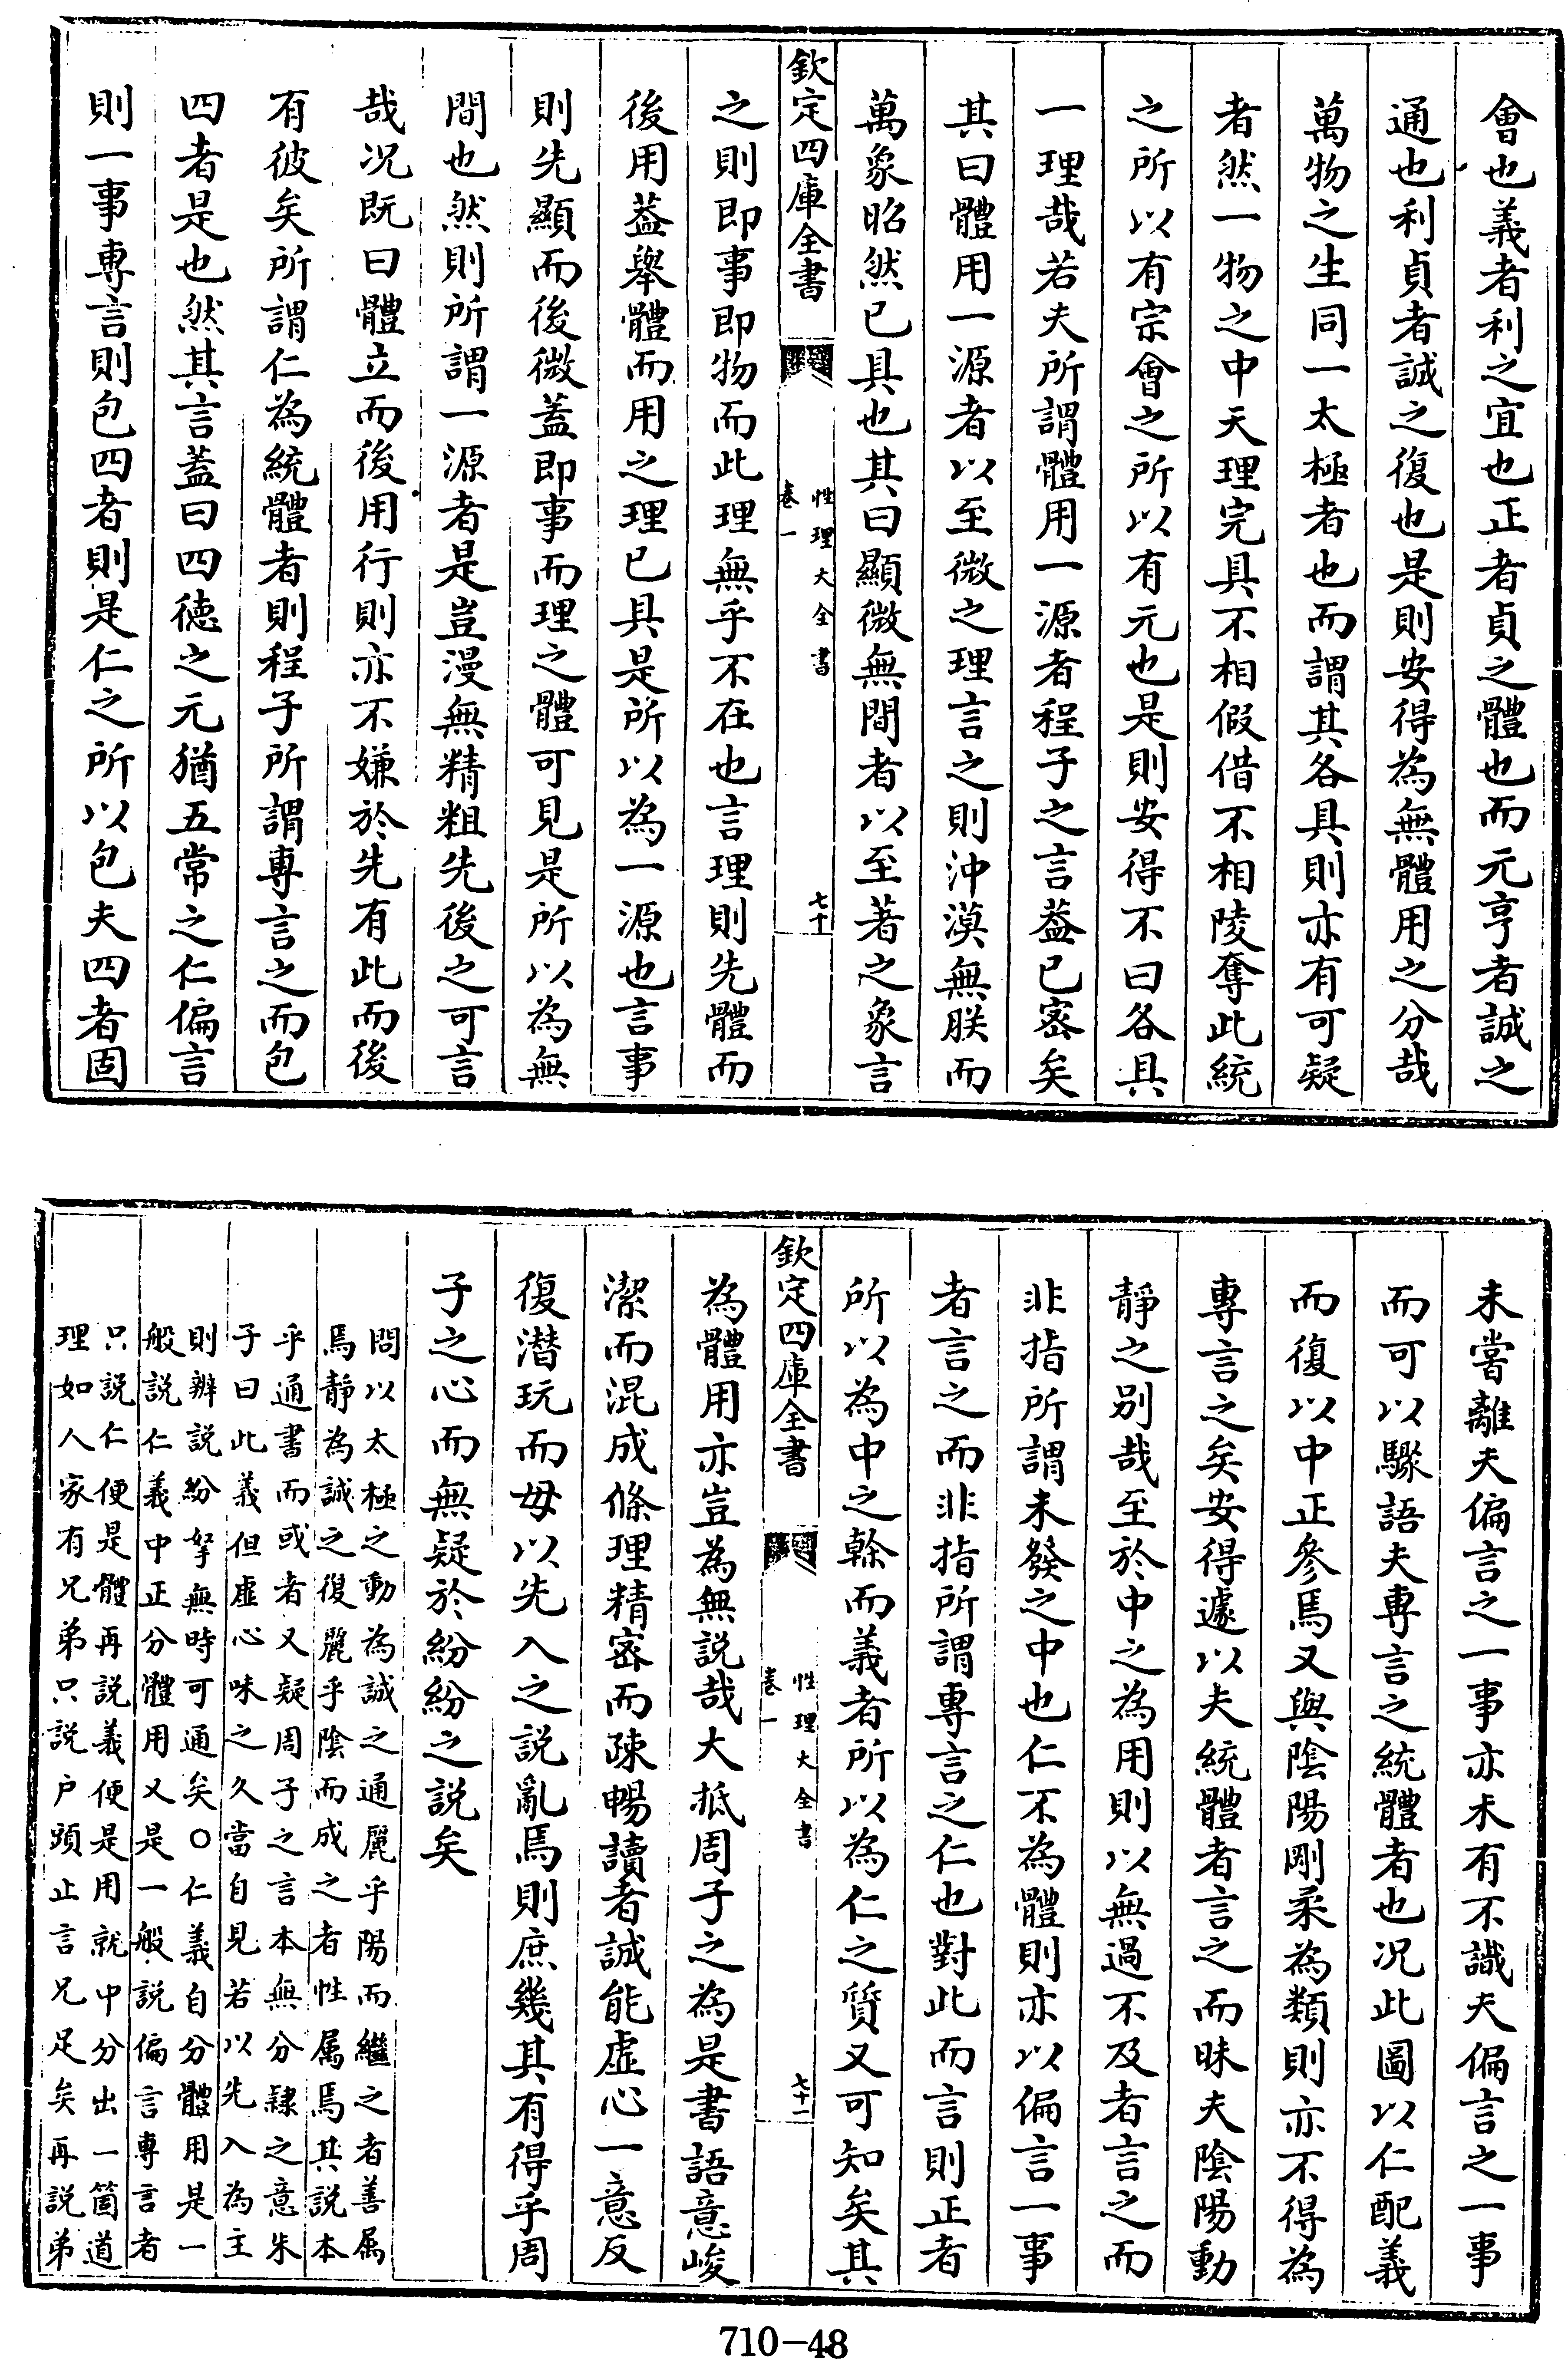 會也義者利之宜也正者貞之體也而元亨者誠之
通也利貞者誠之復也是則安得為無體用之分哉
萬物之生同一太極者也而謂其各具則亦有可疑
者然一物之中天理完具不相假借不相陵奪此統
之所以有宗會之所以有元也是則安得不曰各具
一理哉若夫所謂體用一源者程子之言葢已宻矣
其曰體用一源者以至微之理言之則沖漠無朕而
萬象昭然已具也其曰顯微無間者以至著之象言
欽定四庫全書
性理大全書
卷一
七十
之則即事即物而此理無乎不在也言理則先體而
後用葢舉體而用之理已具是所以為一源也言事
則先顯而後微蓋即事而理之體可見是所以為無
間也然則所謂一源者是豈漫無精粗先後之可言
哉况既曰體立而後用行則亦不嫌於先有此而後
有彼矣所謂仁為統體者則程子所謂專言之而包
四者是也然其言蓋曰四徳之元猶五常之仁偏言
則一事專言則包四者則是仁之所以包夫四者固
未嘗離夫偏言之一事亦未有不識夫偏言之一事
而可以驟語夫專言之統體者也况此圖以仁配義
而復以中正參焉又與陰陽剛柔為類則亦不得為
專言之矣安得遽以夫統體者言之而昧夫陰陽動
靜之别哉至於中之為用則以無過不及者言之而
非指所謂未發之中也仁不為體則亦以偏言一事
者言之而非指所謂專言之仁也對此而言則正者
所以為中之榦而義者所以為仁之質又可知矣其
欽定四庫全書
性理大全書
卷一
七十一
為體用亦豈為無説哉大抵周子之為是書語意峻
潔而混成條理精宻而疎暢讀者誠能虛心一意反
復潜玩而毋以先入之説亂焉則庶幾其有得乎周
子之心而無疑於紛紛之説矣
問以太極之動為誠之通麗乎陽而繼之者善属
焉靜為誠之復麗乎陰而成之者性属焉其説本
乎通書而或者又疑周子之言本無分隷之意朱
子曰此義但虛心味之久當自見若以先入為主
則辨説紛拏無時可通矣○仁義自分體用是一
般説仁義中正分體用又是一般説偏言專言者
只説仁便是體再説義便是用就中分出一箇道
理如人家有兄弟只説户頭止言兄足矣再説弟
710-48